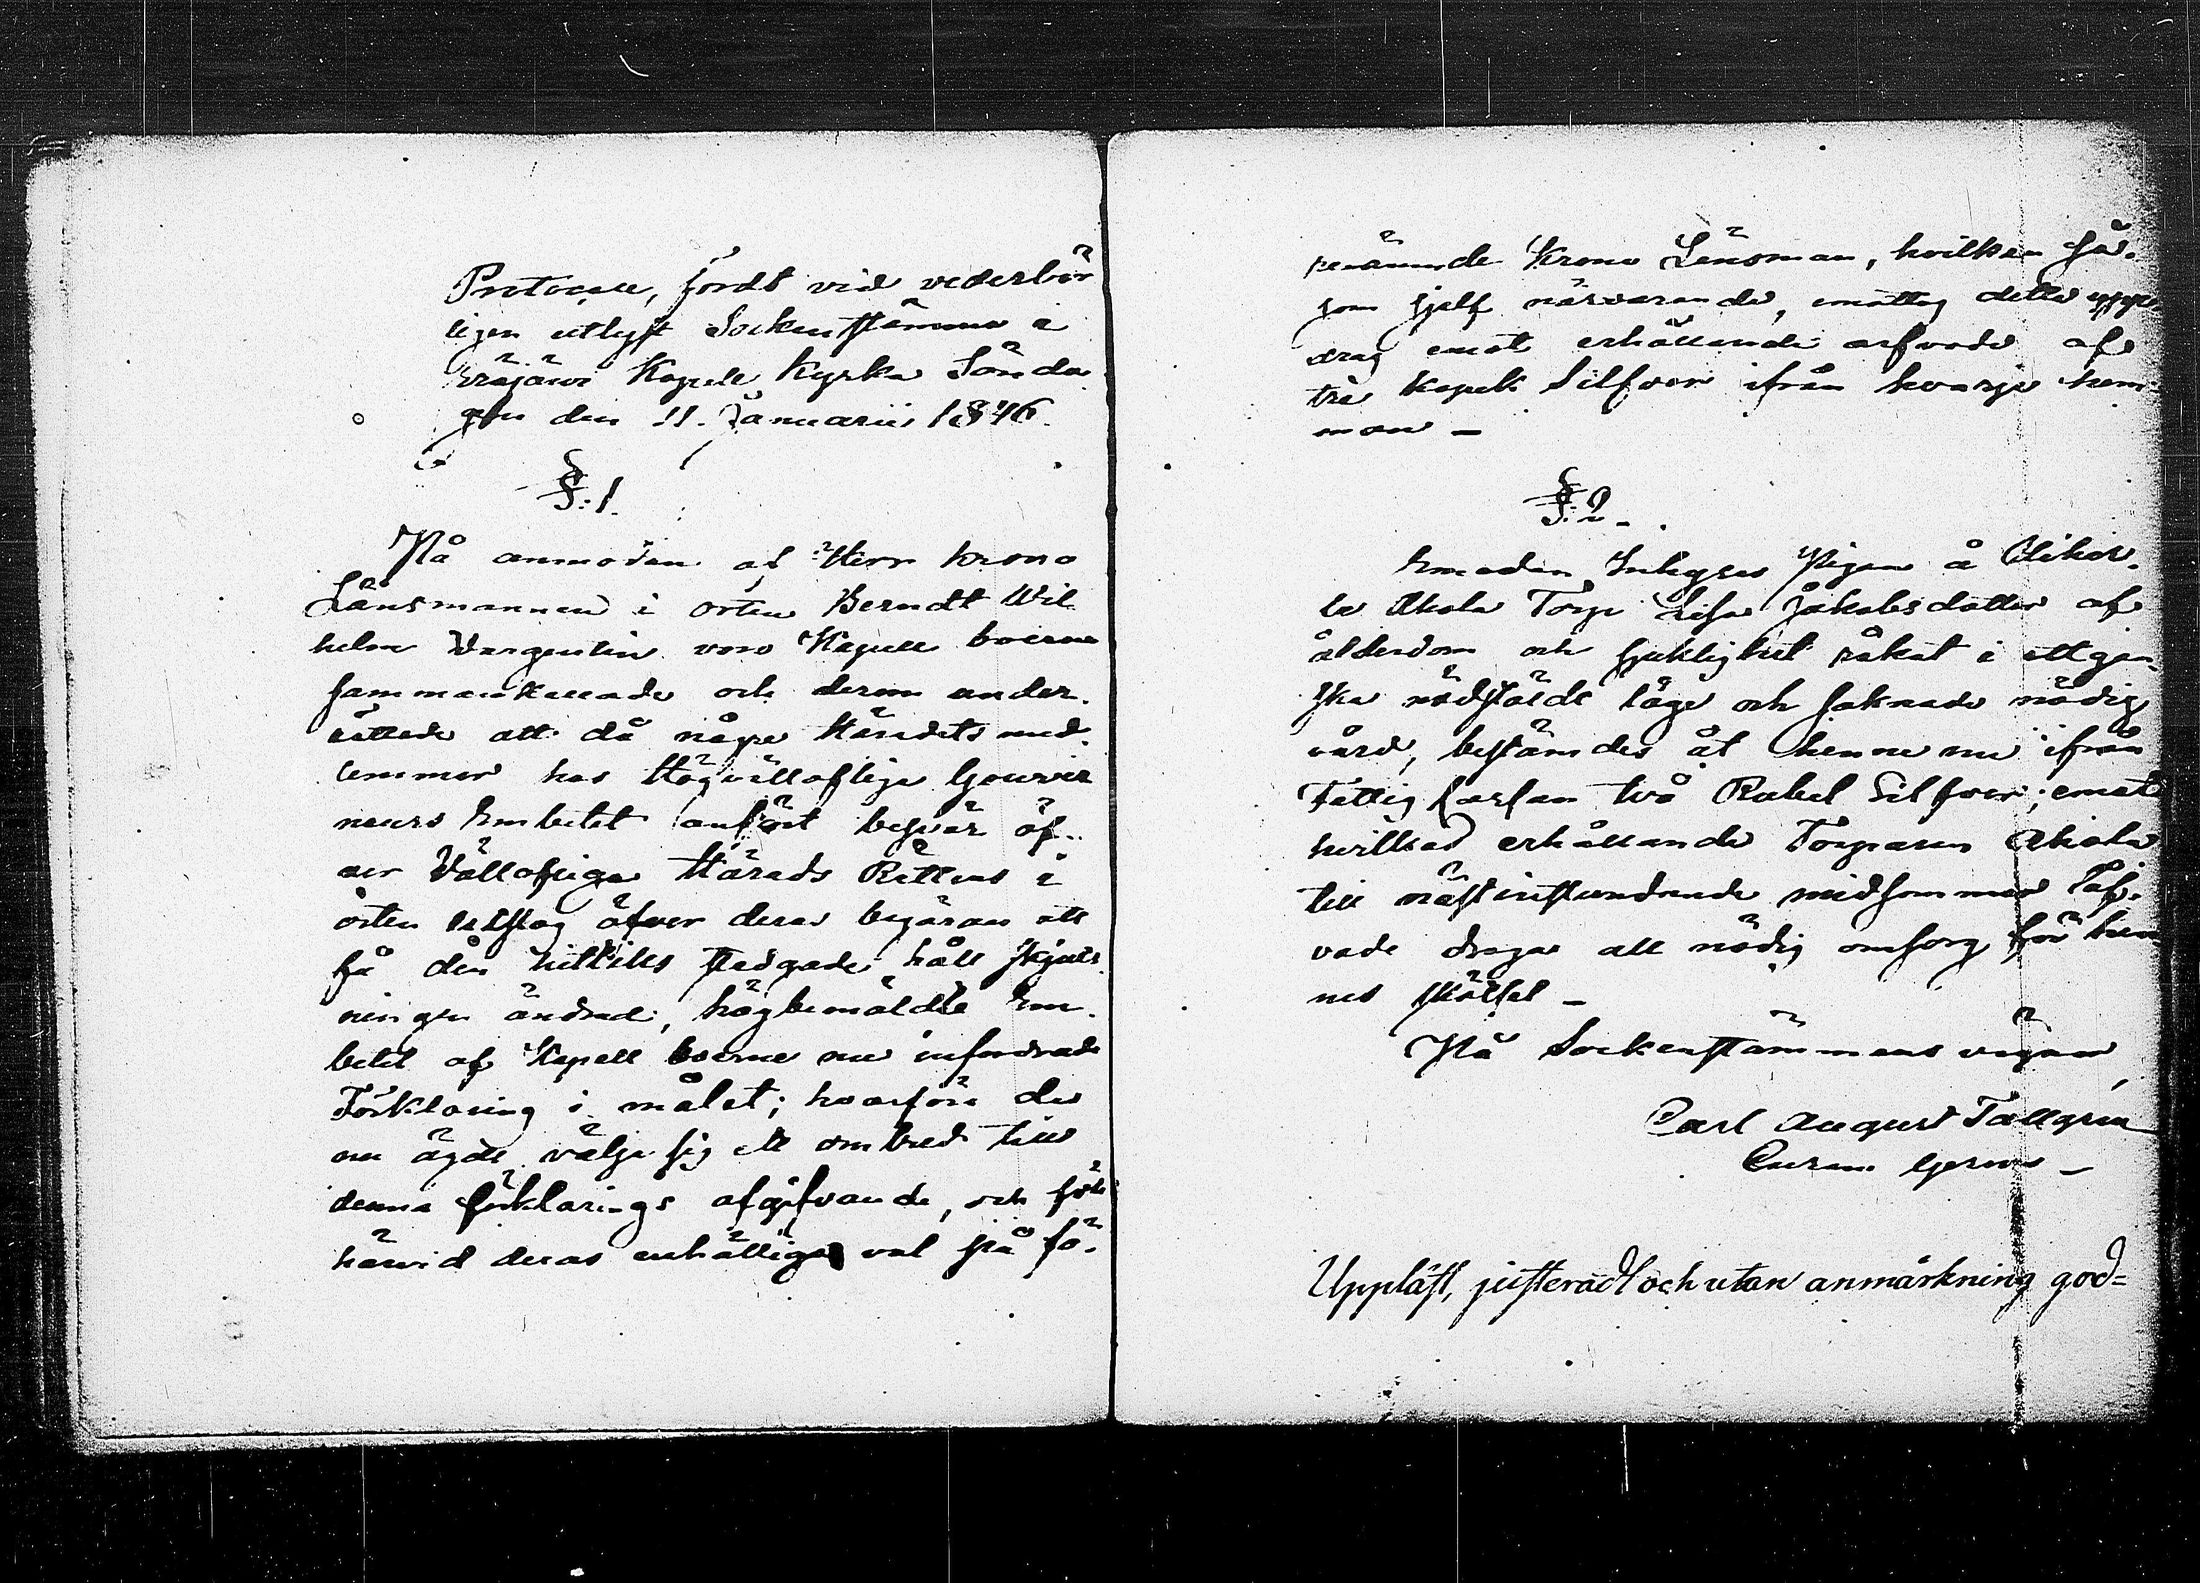 Protocoll, fördt vid vederbör
ligen utlyst Sockenstämma i
Eräjärvi Kapell Kyrka Sönda
gen den 11. Januarii 1846.
§. 1.
På anmodan af Herr Krono
Länsmannen i orten Berndt Wil
helm Vargentin voro Kapell boerne
sammankallade och dem under.
rättade att då någre Häradets med
lemmar hos Höglofliga Guver
neurs Embetet anfört besvär öf-
ver Vällofliga Härads Rättens i
orten utslag öfver deras begäran att
få den hittills stadgade håll skjuts
ningen ändrad, högbemäldte Em.
betet af Kapell boerne nu infordrade
Förklaring i målet; hvarföre de
nu ägde välja sig ett ombud till
denna förklarings afgifvande, och föll
härvid deras enhälliga val på fö.
renämnde Krono Länsman, hvilken så.
som sjelf närvarande, emottog detta upp
drag emot erhållande arfvode af
tre kopek Silfver ifrån hvarje hem
man -
§. 2.
Emedan Inhyses Pigan å
la Ahola Torp Lisa Jakobsdotter af
ålderdom och sjuklighet råkat i ett gan
ska nödstäldt läge och saknade nödig
vård, bestämdes åt henne nu ifrån
Fattig kassan två Rubel Silfver; emot
hvilkas erhållande Torparen Ahola
till nästinstundande midsommar låf.
vade draga all nödig omsorg för hen
nes skötsel -
På Sockenstämmans vägnar
Carl August Tallgren
Uppläst, justeradt och utan anmärkning god=